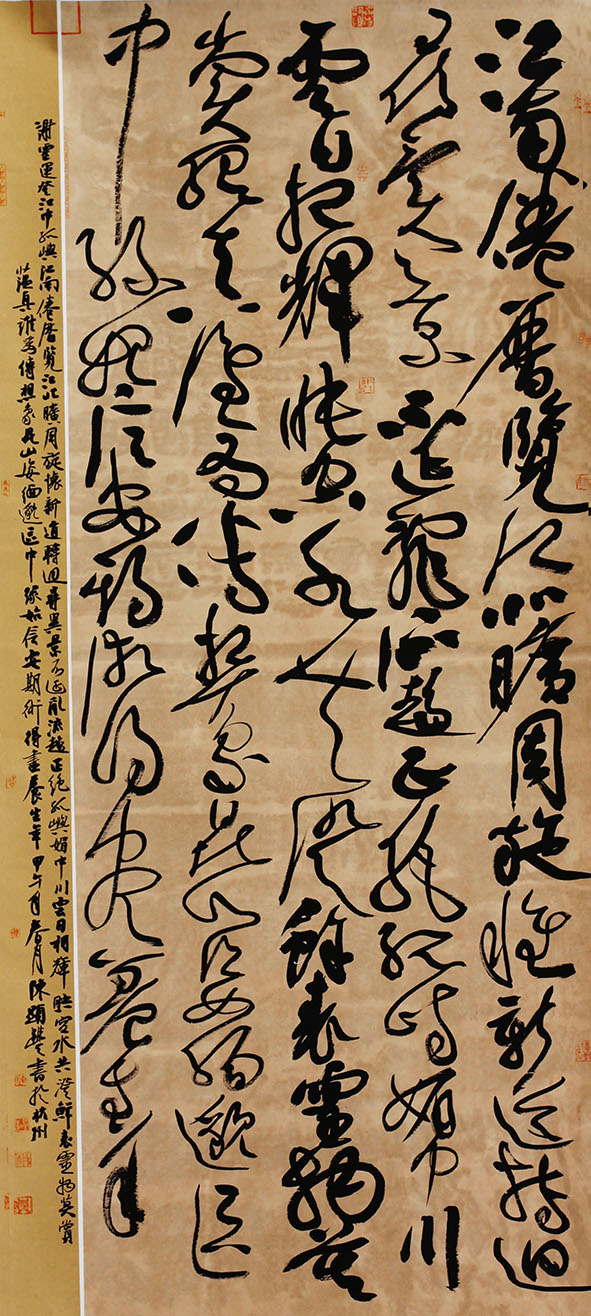 江南倦曆覽江北曠周旋懷新道轉迥
尋異景不延亂流趨正絕孤嶼媚中川
雲日相輝映空水共澄鮮表靈物莫
賞蘊真誰為傳想象昆山姿緬邈區
中緣始信安期術得盡養生年
謝靈運登江中孤嶼 江南倦曆覽江北曠周旋懷新道轉迥尋異景不延亂流趨正絕孤嶼媚中川雲日相輝映空水共澄鮮表靈物莫賞
蘊真誰為傳想象昆山姿緬邈區中緣始信安期術得盡養生年 甲午春月陳顯書於杭州